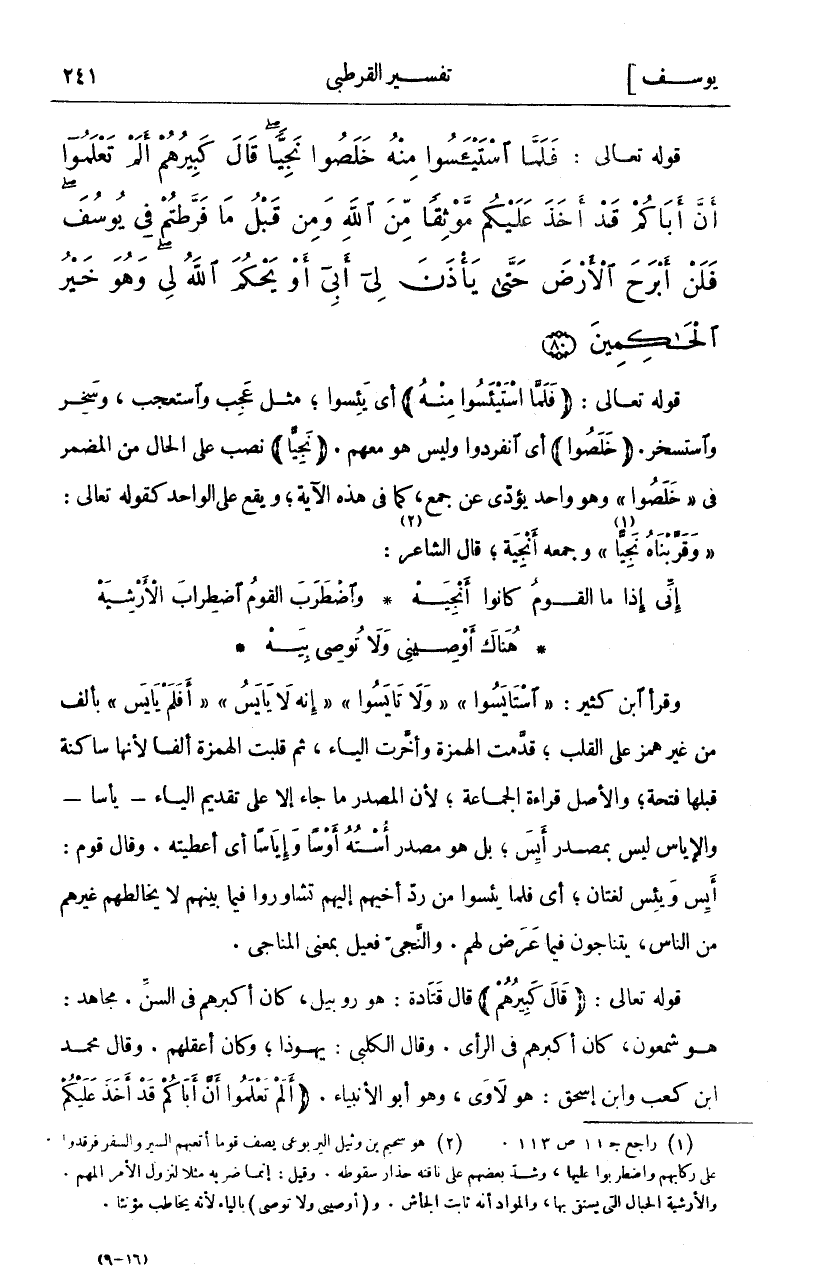 يوسف ]	تفسير القرطبى	٢٤١
قوله تعالى : فَلَمَّا ٱسْتَيْـَٔسُوا مِنْهُ خَلَصُوا نَجِيًّا ۖ قَالَ كَبِيرُهُمْ أَلَمْ تَعْلَمُوٓا
أَنَّ أَبَاكُمْ قَدْ أَخَذَ عَلَيْكُم مَّوْثِقًا مِّنَ ٱللَّهِ وَمِن قَبْلُ مَا فَرَّطتُمْ فِى يُوسُفَ ۖ
فَلَنْ أَبْرَحَ ٱلْأَرْضَ حَتَّىٰ يَأْذَنَ لِىٓ أَبِىٓ أَوْ يَحْكُمَ ٱللَّهُ لِى ۖ وَهُوَ خَيْرُ
ٱلْحَـٰكِمِينَ ﴿٨٠﴾
قوله تعالى : ﴿ فَلَمَّا اسْتَيْئَسُوا مِنْهُ ﴾ أى يَئِسوا ؛ مثل عَجِب وٱستعجب ، وسَخِر
وٱستسخر. ﴿ خَلَصُوا ﴾ أى ٱنفردوا وليس هو معهم . ﴿ نَجِيًّا ﴾ نصب على الحال من المضمر
فى « خَلَصُوا » وهو واحد يؤدّى عن جمع، كما فى هذه الآية ؛ ويقع على الواحد كقوله تعالى :
« وَقَرَّبْنَاهُ نَجِيًّا » (١) وجمعه أَنْجِيَة (٢) ؛ قال الشاعر :
إِنِّى إذا ما القـــومُ كانوا أَنْجِيَـــهْ * وٱضْطَرَبَ القومُ ٱضطرابَ الْأَرْشِيَهْ
* هُنَاكَ أَوْصِـــينِى وَلَا تُوصِى بِيَـــهْ *
وقرأ ٱبن كثير : « ٱسْتَايَسُوا » « وَلَا تَايَسُوا » « إنه لَا يَايَسُ » « أَفَلَمْ يَايَسِ » بألف
من غير همز على القلب ؛ قدّمت الهمزة وأخّرت الياء ، ثم قلبت الهمزة ألفا لأنها ساكنة
قبلها فتحة؛ والأصل قراءة الجماعة ؛ لأن المصدر ما جاء إلا على تقديم الياء – يأسا –
والإياس ليس بمصدر أَيِسَ ؛ بل هو مصدر أُسْتُهُ أَوْسًا وَإِيَاسًا أى أعطيته . وقال قوم :
أَيِس وَيَئِس لغتان ؛ أى فلما يئسوا من ردّ أخيهم إليهم تشاوروا فيما بينهم لا يخالطهم غيرهم
من الناس، يتناجون فيما عَرَض لهم . والنَّجىّ فعيل بمعنى المناجى .
قوله تعالى : ﴿ قَالَ كَبِيرُهُمْ ﴾ قال قَتَادة : هو روبيل، كان أكبرهم فى السنّ . مجاهد :
هو شمعون، كان أكبرهم فى الرأى . وقال الكلبى : يهوذا ؛ وكان أعقلهم . وقال محمد
ابن كعب وابن إسحق : هو لَاوَى ، وهو أبو الأنبياء . ﴿ أَلَمْ تَعْلَمُوا أَنَّ أَبَاكُمْ قَدْ أَخَذَ عَلَيْكُمْ
(١) راجع جـ ١١ ص ١١٣ . (٢) هو سحيم بن وثيل اليربوعى يصف قوما أتعبهم السير والسفر فرقدوا
على ركابهم واضطربوا عليها ، وشدّ بعضهم على ناقته حذار سقوطه . وقيل : إنما ضربه مثلا لنزول الأمر المهم .
والأرشية الحبال التى يستقى بها، والمراد أنه ثابت الجأش . و(أوصينى ولا توصى) بالياء لأنه يخاطب مؤنثا .
(٩-١٦)